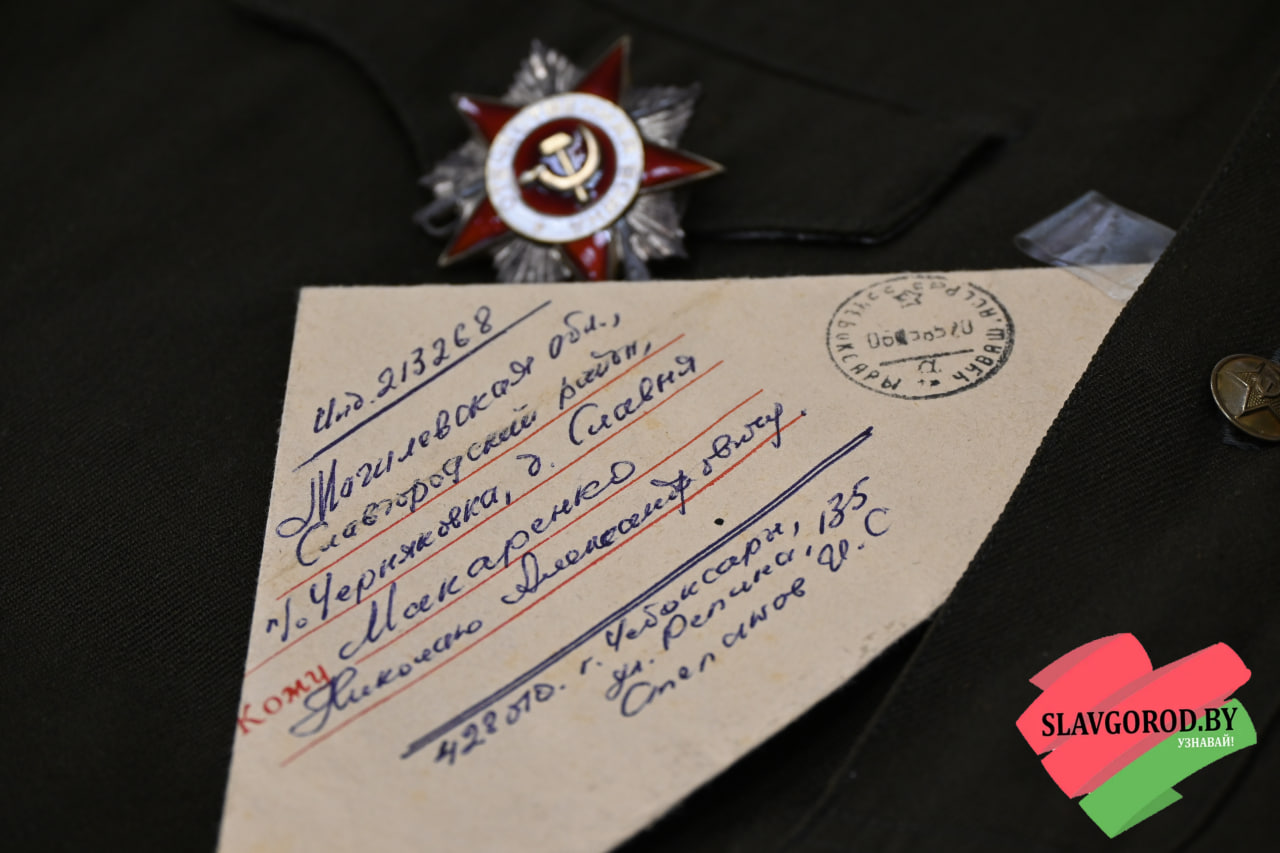 Инд. 213268
Могилевская обл.,
Славгородский район,
п/о. Черняковка, д. Славня
Кому Макаренко
Николаю Александровичу.
428010. г. Чебоксары,
ул. Репина, 135
Степанов И. С
ЧЕБОКСАРЫ
ЧУВАШ. АССР
SLAVGOROD.BY
УЗНАВАЙ!